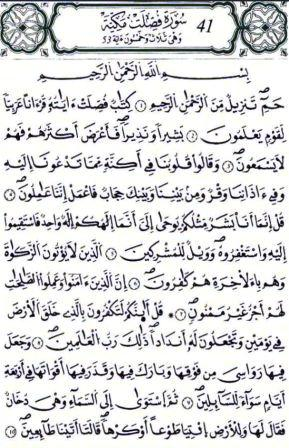 سُورَةُ فُصِّلَتْ مَكِّيَّةٌ
41
بِسْمِ اللَّهِ الرَّحْمَٰنِ الرَّحِيمِ
حمٓ تَنزِيلٌ مِّنَ الرَّحْمَٰنِ الرَّحِيمِ ١ كِتَٰبٌ فُصِّلَتْ ءَايَٰتُهُۥ قُرْءَانًا عَرَبِيًّا
لِّقَوْمٍ يَعْلَمُونَ ٢ بَشِيرًا وَنَذِيرًا فَأَعْرَضَ أَكْثَرُهُمْ فَهُمْ
لَا يَسْمَعُونَ ٣ وَقَالُوا قُلُوبُنَا فِي أَكِنَّةٍ مِّمَّا تَدْعُونَا إِلَيْهِ
وَفِي ءَاذَانِنَا وَقْرٌ وَمِنۢ بَيْنِنَا وَبَيْنِكَ حِجَابٌ فَاعْمَلْ إِنَّنَا عَٰمِلُونَ ٤
قُلْ إِنَّمَا أَنَا بَشَرٌ مِّثْلُكُمْ يُوحَىٰ إِلَيَّ أَنَّمَا إِلَٰهُكُمْ إِلَٰهٌ وَٰحِدٌ فَاسْتَقِيمُوا
إِلَيْهِ وَاسْتَغْفِرُوهُ وَوَيْلٌ لِّلْمُشْرِكِينَ ٥ الَّذِينَ لَا يُؤْتُونَ الزَّكَوٰةَ
وَهُم بِالْأَخِرَةِ هُمْ كَٰفِرُونَ ٦ إِنَّ الَّذِينَ ءَامَنُوا وَعَمِلُوا الصَّٰلِحَٰتِ
لَهُمْ أَجْرٌ غَيْرُ مَمْنُونٍ ٧ قُلْ أَئِنَّكُمْ لَتَكْفُرُونَ بِالَّذِي خَلَقَ الْأَرْضَ
فِي يَوْمَيْنِ وَتَجْعَلُونَ لَهُۥ أَندَادًا ذَٰلِكَ رَبُّ الْعَٰلَمِينَ ٨ وَجَعَلَ
فِيهَا رَوَٰسِيَ مِن فَوْقِهَا وَبَٰرَكَ فِيهَا وَقَدَّرَ فِيهَا أَقْوَٰتَهَا فِي أَرْبَعَةِ
أَيَّامٍ سَوَاءً لِّلسَّائِلِينَ ٩ ثُمَّ اسْتَوَىٰ إِلَى السَّمَاءِ وَهِيَ دُخَانٌ
فَقَالَ لَهَا وَلِلْأَرْضِ ائْتِيَا طَوْعًا أَوْ كَرْهًا قَالَتَا أَتَيْنَا طَائِعِينَ ١٠